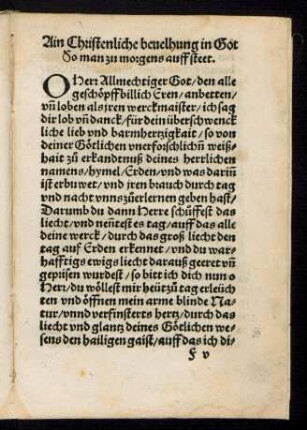 Ain Christenliche beuelhung in Got
So man zu morgens auff steet.
O Herꝛ Allmechtiger Got/ den alle
geschöpff billich Eren/ anbetten/
vñ loben als jren werckmaister/ ich sag
dir lob vñ danck/ für dein überschwenck
liche lieb vnd barmhertzigkait/ so von
deiner Götlichen vnerforschlichñ weiß⸗
hait zů erkandtnuß deines herrlichen
namens/ hymel/ Erden/ vnd was dariñ
ist erbuwet/ vnd jren brauch durch tag
vnd nacht vnns zůerlernen geben hast/
Darumb du dann Herre schůffest das
liecht/ vnd neñtest es tag/ auff das alle
deine werck/ durch das groß liecht den
tag auff Erden erkennet/ vnd du war⸗
hafftigs ewigs liecht darauß geeret vñ
gepꝛisen wurdest/ so bitt ich dich nun o
Herꝛ/ du wöllest mir heütz ů tag erleüch
ten vnd öffnen mein arme blinde Na⸗
tur/ vnnd verfinsterts hertz/ durch das
liecht vnd glantz deines Götlichen we⸗
sens den hailigen gaist/ auff das ich di⸗
v